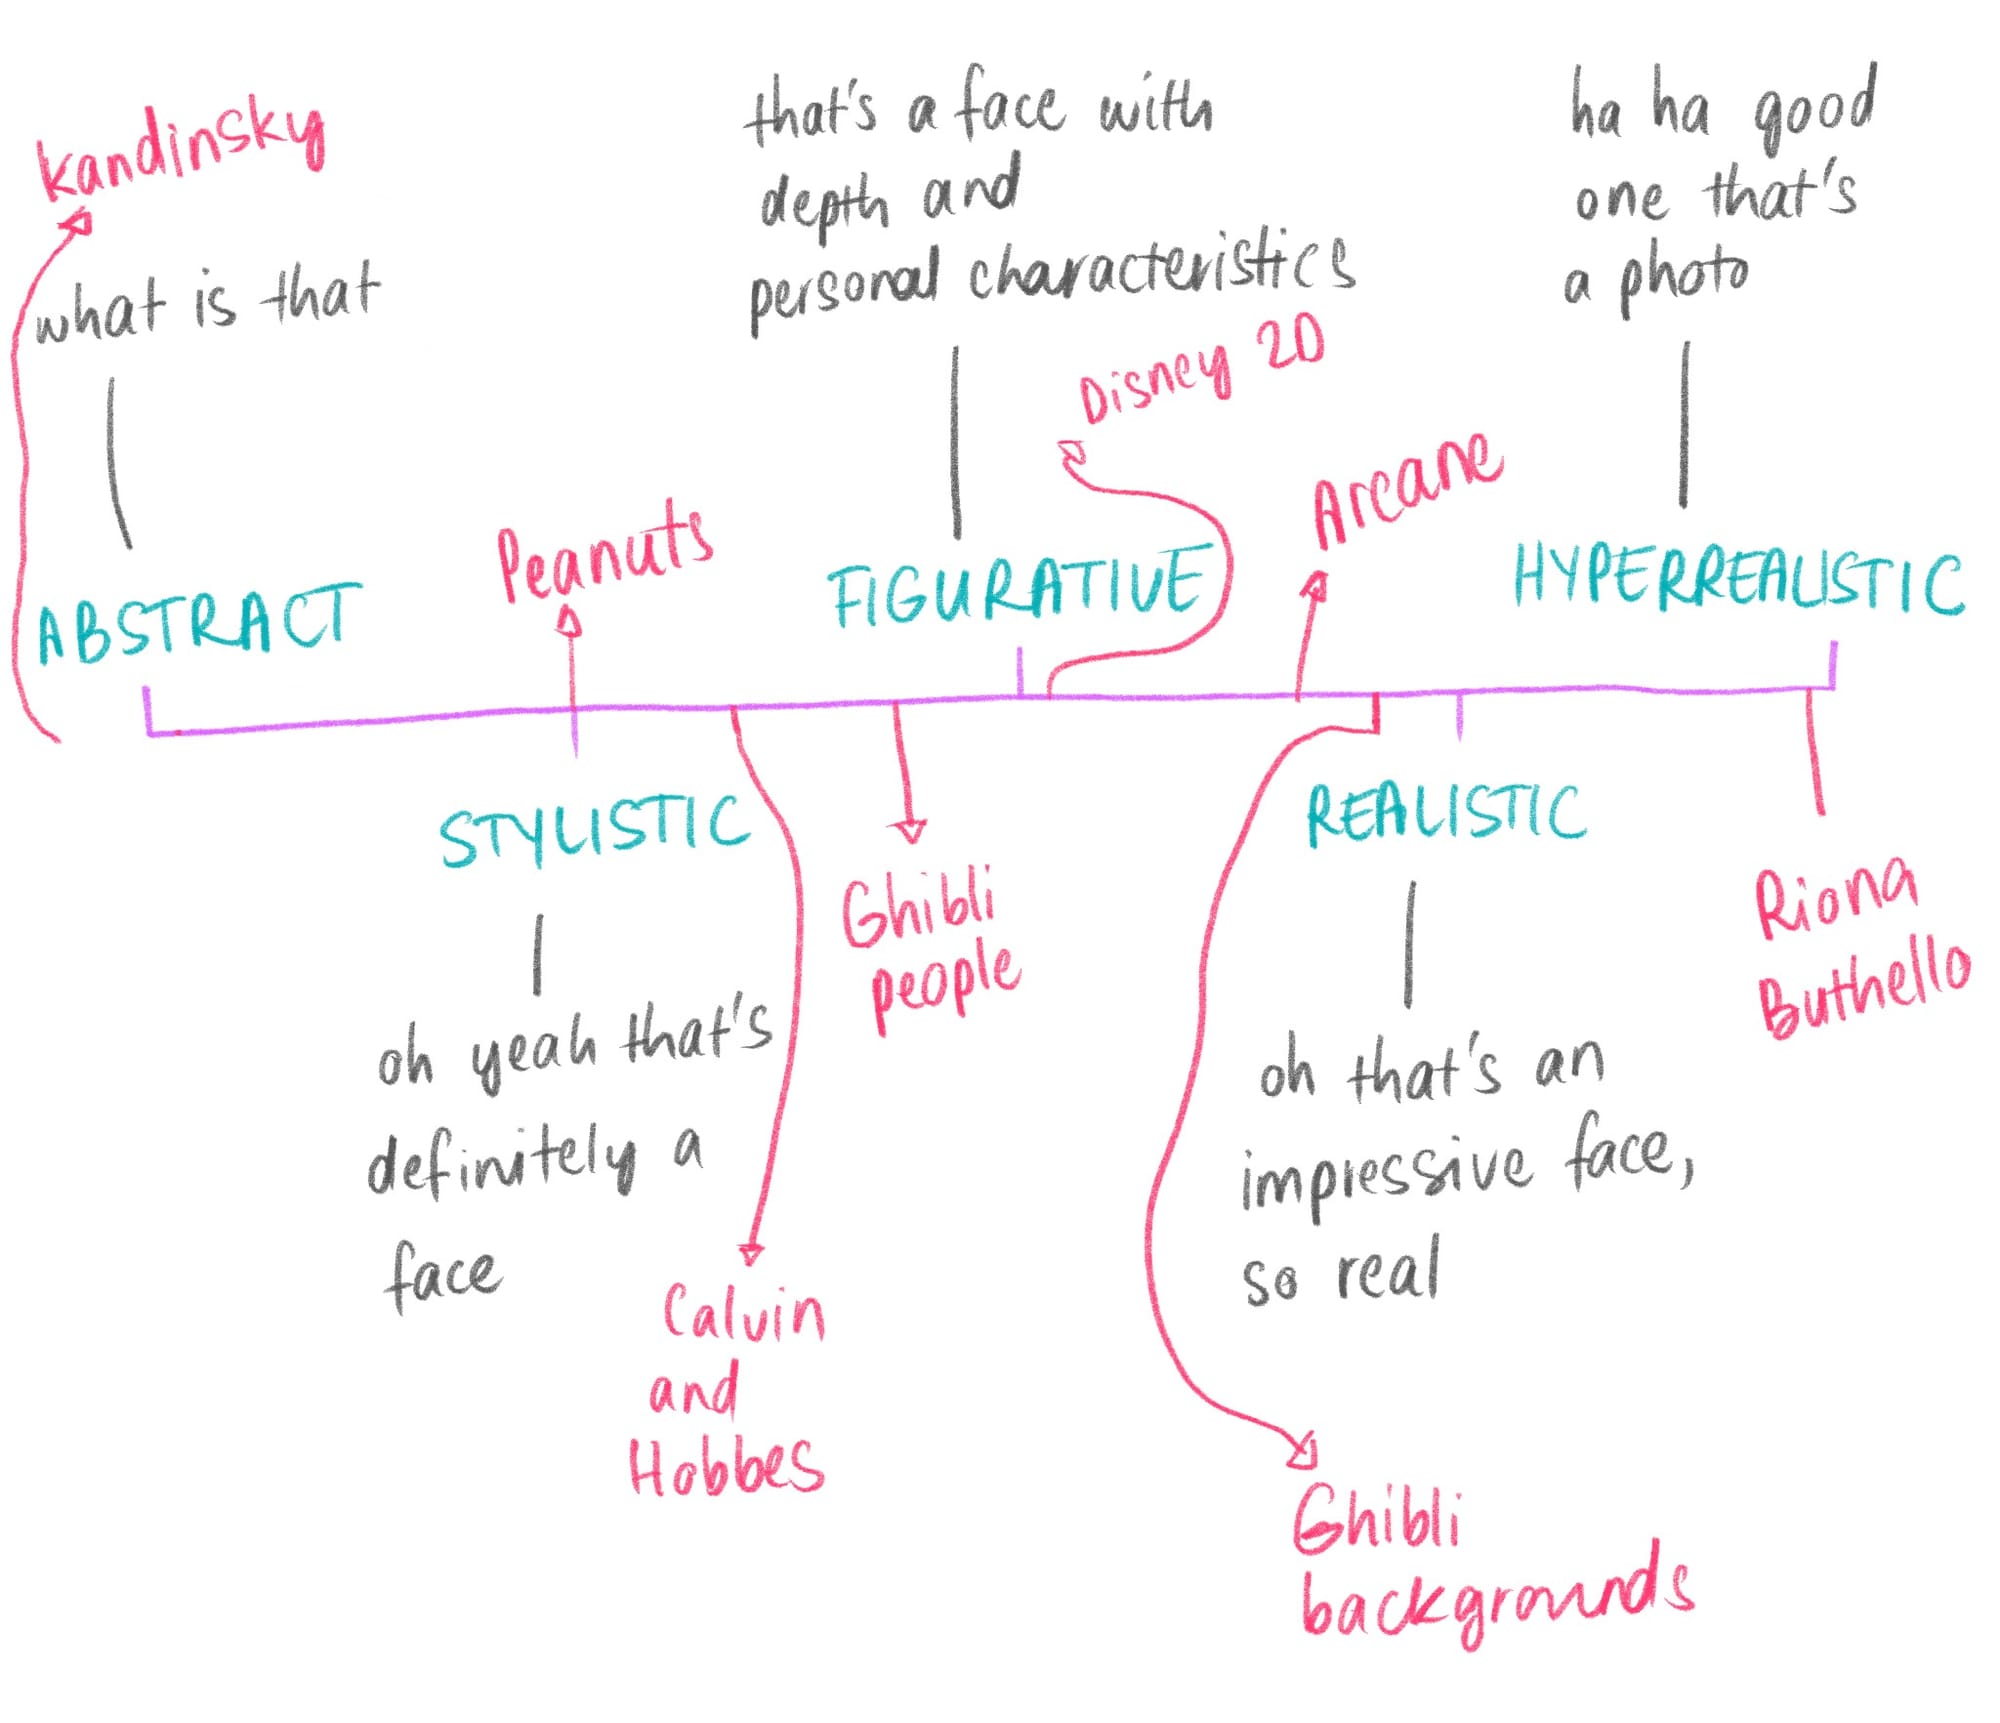 kandinsky
what is that
ABSTRACT
that's a face with
depth and
personal characteristics
Disney 2D
FIGURATIVE
ha ha good
one that's
a photo
HYPERREALISTIC
Peanuts
Arcane
STYLISTIC
oh yeah that's
definitely a
face
Calvin
and
Hobbes
Ghibli
people
REALISTIC
oh that's an
impressive face,
so real
Ghibli
backgrounds
Riona
Buthello